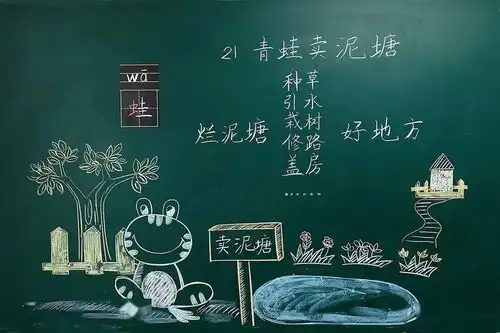 21 青蛙卖泥塘
wā
蛙
烂泥塘
种草
引水
栽树
修路
盖房
……
好地方
卖泥塘